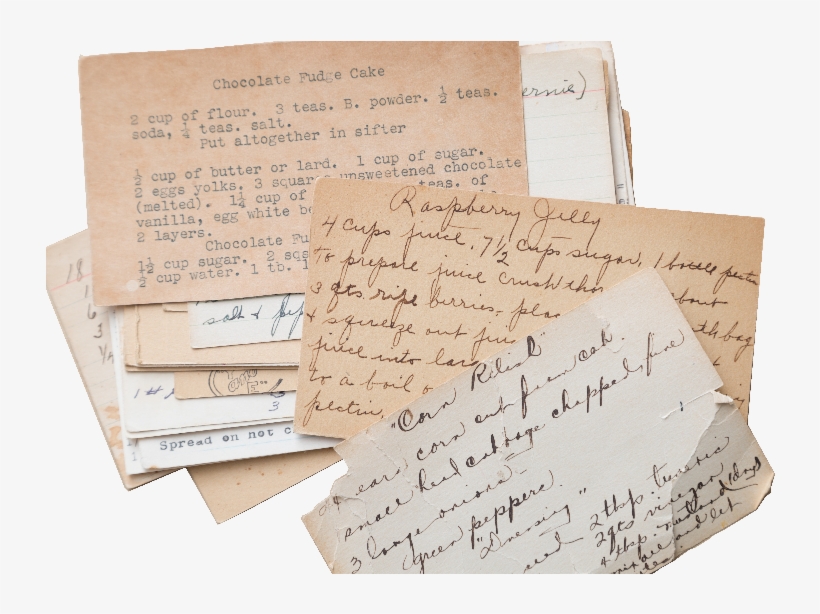 Chocolate Fudge Cake
2 cup of flour. 3 teas. B. powder. ½ teas.
soda, ¼ teas. salt.
Put altogether in sifter
½ cup of butter or lard. 1 cup of sugar.
2 eggs yolks. 3 squar unsweetened chocolate
(melted). 1¼ cup of teas. of
vanilla, egg white be
2 layers.
Chocolate Fu
1½ cup sugar. 2 sqs
½ cup water. 1 tb.
ernie)
Raspberry Jelly
4 cups juice, 7½ cups sugar, 1 bottle pectin
To prepare juice crush tho about
3 qts. ripe berries, plac
& squeeze out juic
juice into larg
to a boil
pectin,
18
salt & pep
1 #
6
3
Spread on not c
"Corn Relish"
ears corn cut from cob.
small head cabbage chopped fine
3 large onions
green peppers.
"Dressing"
2 tbsp. tumeric
2 qts vinegar
4 tbsp. mustard
mix all and let